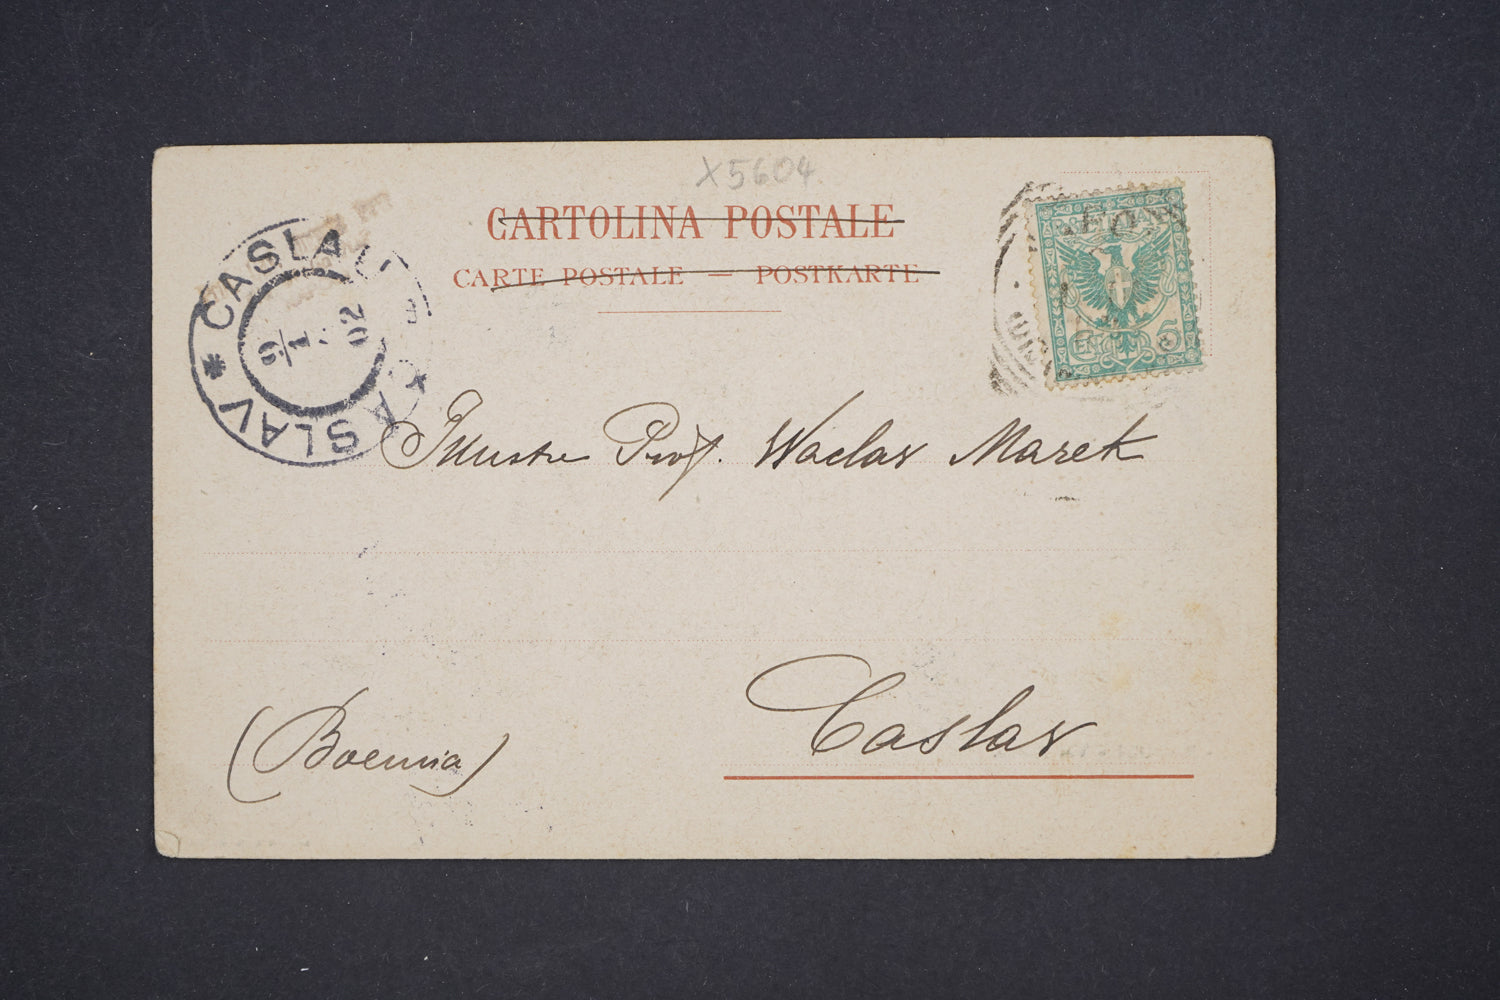 X5604
CARTOLINA POSTALE
CARTE POSTALE = POSTKARTE
CASLAU
ČASLAV
9/1
02
CEN 5
Illustre Prof. Waclav Marek
Caslav
(Boemia)